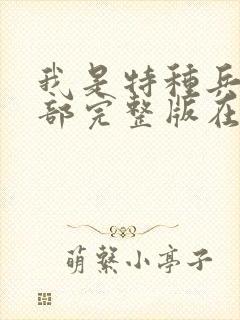 我是特種兵
部完整版在
萌繄小亭子